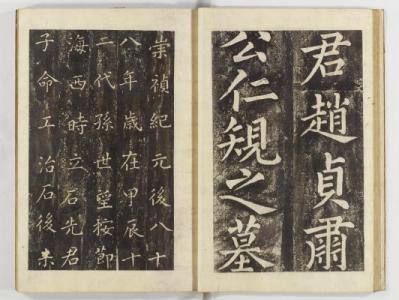 君趙貞肅
公仁規之墓
崇禎紀元後八十
八年歲在甲辰十
二代孫世望按節
海西時立石先君
子命工治石後未